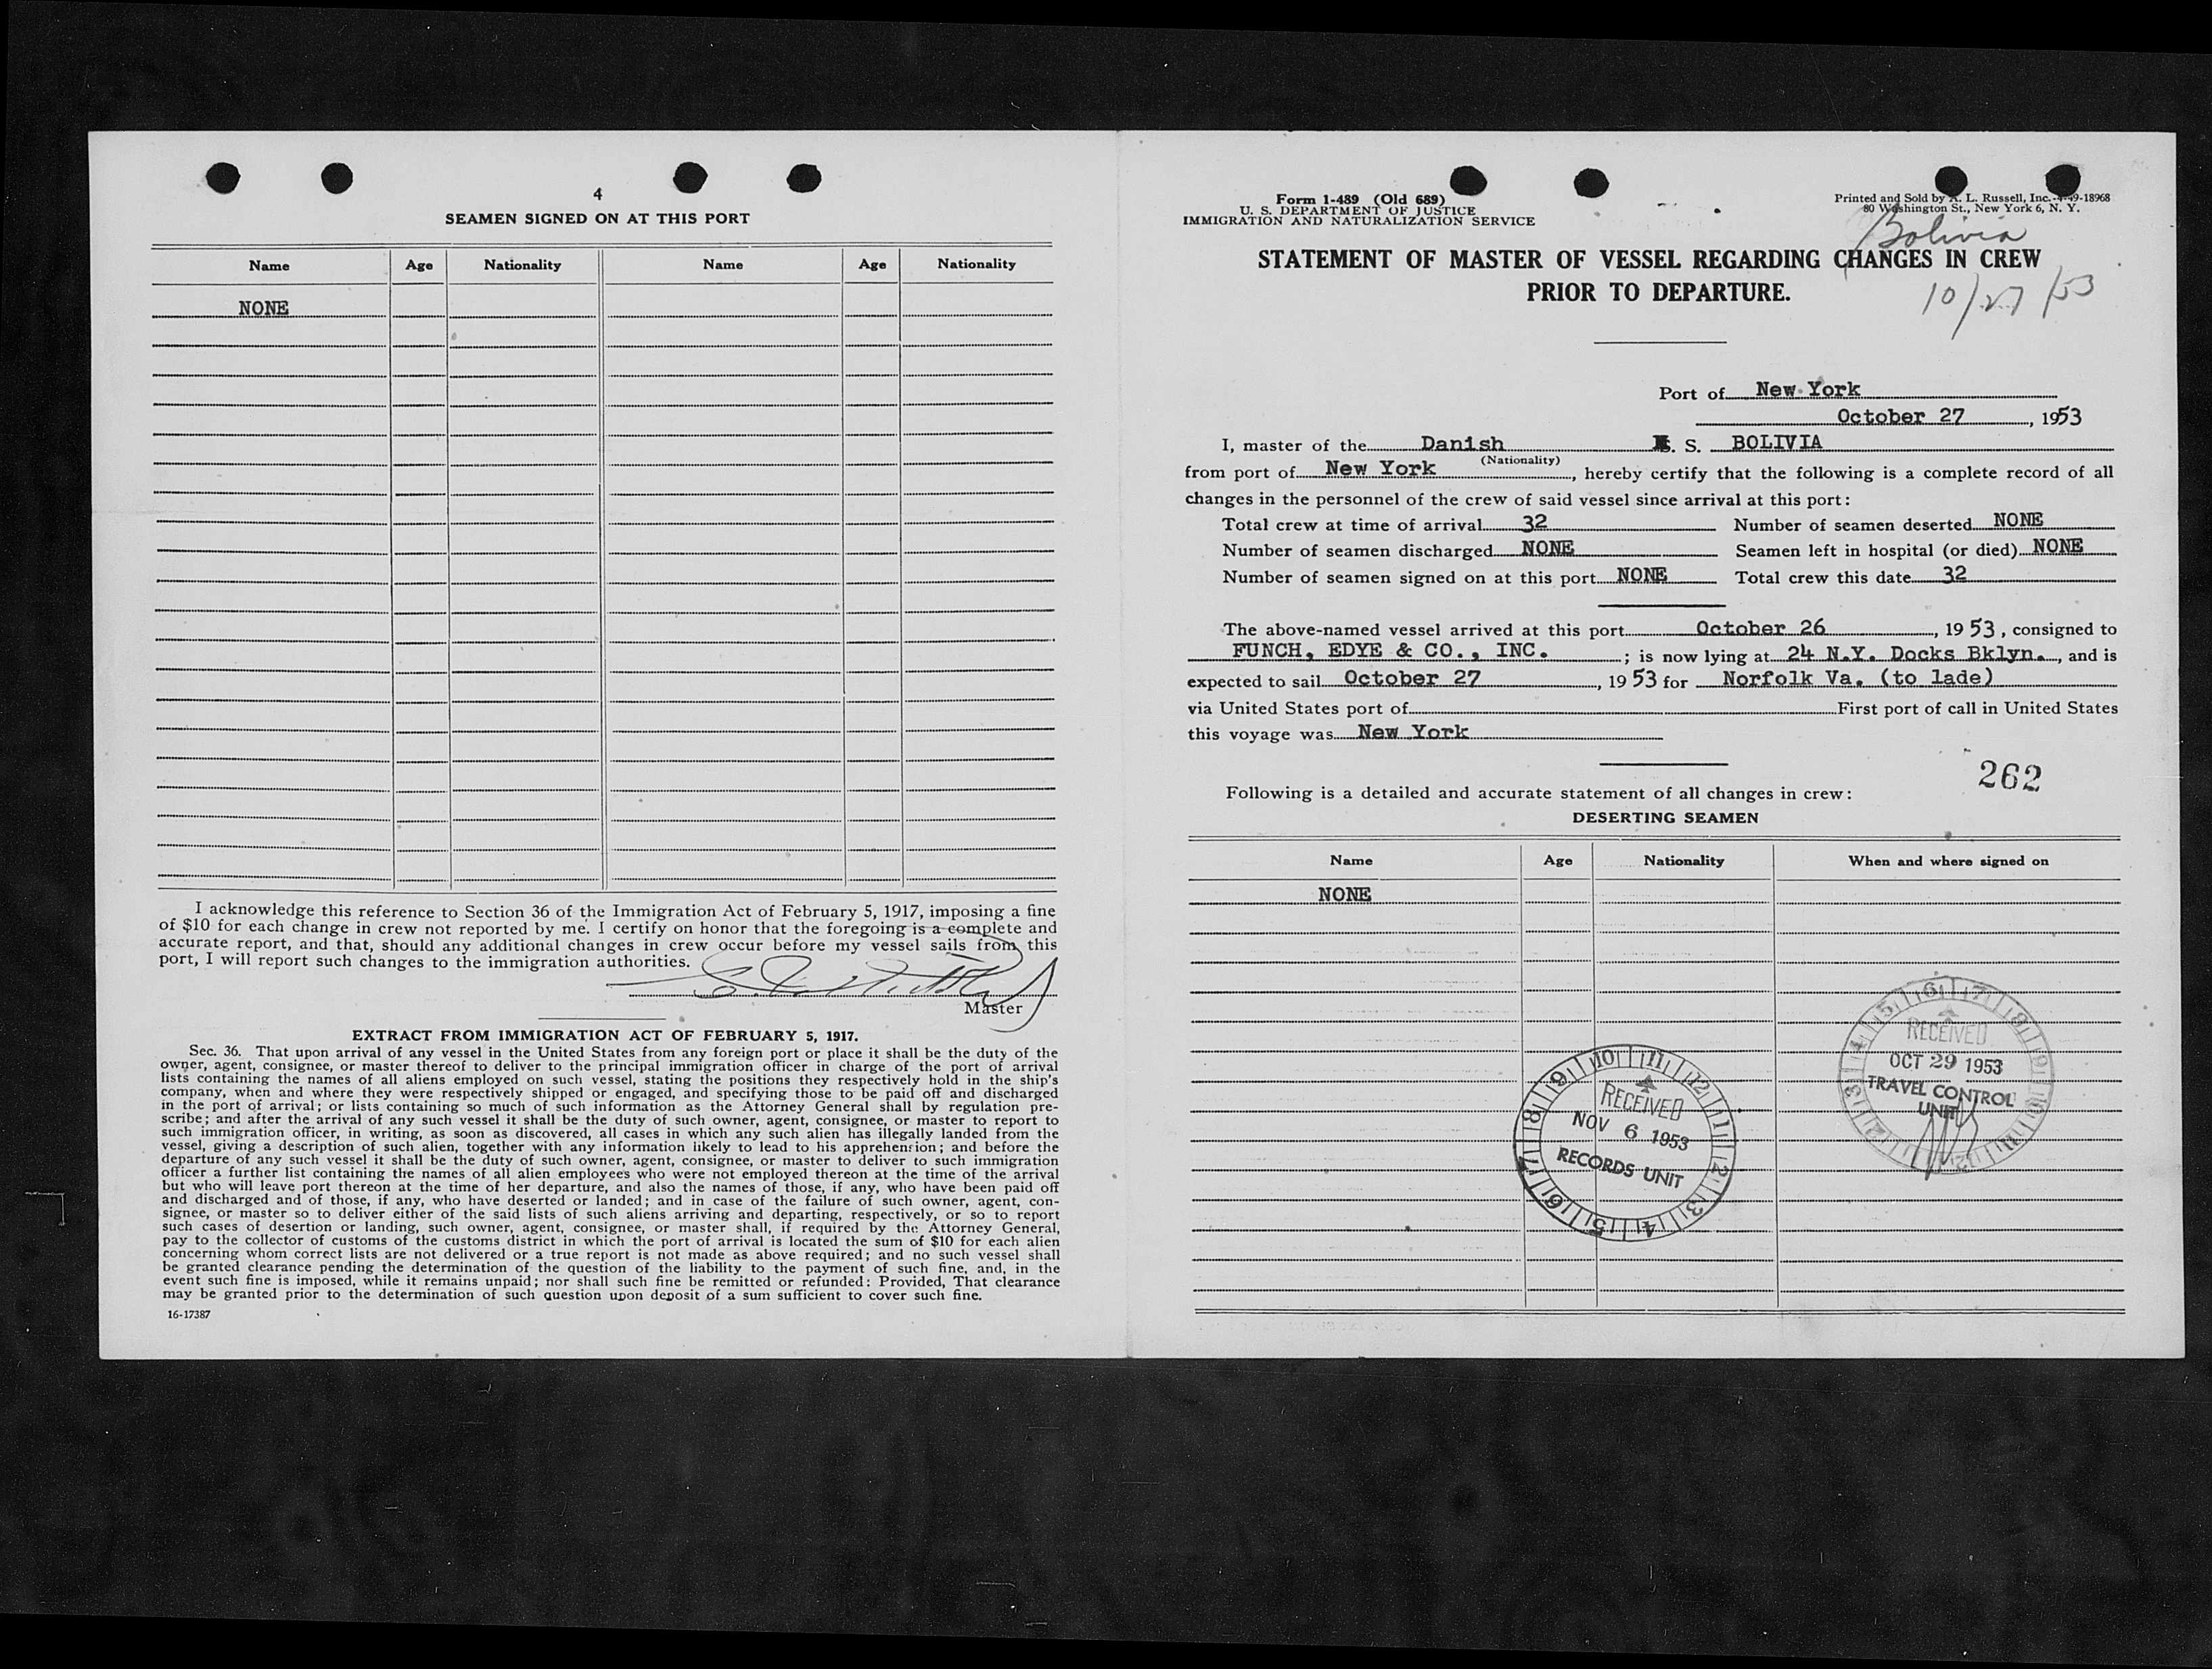 4
SEAMEN SIGNED ON AT THIS PORT
Name Age Nationality Name Age Nationality
NONE
I acknowledge this reference to Section 36 of the Immigration Act of February 5, 1917, imposing a fine
of $10 for each change in crew not reported by me. I certify on honor that the foregoing is a complete and
accurate report, and that, should any additional changes in crew occur before my vessel sails from this
port, I will report such changes to the immigration authorities.
Master
EXTRACT FROM IMMIGRATION ACT OF FEBRUARY 5, 1917.
Sec. 36. That upon arrival of any vessel in the United States from any foreign port or place it shall be the duty of the
owner, agent, consignee, or master thereof to deliver to the principal immigration officer in charge of the port of arrival
lists containing the names of all aliens employed on such vessel, stating the positions they respectively hold in the ship's
company, when and where they were respectively shipped or engaged, and specifying those to be paid off and discharged
in the port of arrival; or lists containing so much of such information as the Attorney General shall by regulation pre-
scribe; and after the arrival of any such vessel it shall be the duty of such owner, agent, consignee, or master to report to
such immigration officer, in writing, as soon as discovered, all cases in which any such alien has illegally landed from the
vessel, giving a description of such alien, together with any information likely to lead to his apprehension; and before the
departure of any such vessel it shall be the duty of such owner, agent, consignee, or master to deliver to such immigration
officer a further list containing the names of all alien employees who were not employed thereon at the time of the arrival
but who will leave port thereon at the time of her departure, and also the names of those, if any, who have been paid off
and discharged and of those, if any, who have deserted or landed; and in case of the failure of such owner, agent, con-
signee, or master so to deliver either of the said lists of such aliens arriving and departing, respectively, or so to report
such cases of desertion or landing, such owner, agent, consignee, or master shall, if required by the Attorney General,
pay to the collector of customs of the customs district in which the port of arrival is located the sum of $10 for each alien
concerning whom correct lists are not delivered or a true report is not made as above required; and no such vessel shall
be granted clearance pending the determination of the question of the liability to the payment of such fine, and, in the
event such fine is imposed, while it remains unpaid; nor shall such fine be remitted or refunded: Provided, That clearance
may be granted prior to the determination of such question upon deposit of a sum sufficient to cover such fine.
16-17387
Form 1-489 (Old 689)
U. S. DEPARTMENT OF JUSTICE
IMMIGRATION AND NATURALIZATION SERVICE
Printed and Sold by L. Russell, Inc.
80 Washington St., New York 6, N. Y.
Bolivia
STATEMENT OF MASTER OF VESSEL REGARDING CHANGES IN CREW
PRIOR TO DEPARTURE.
10/27/53
Port of New York
October 27, 1953
I, master of the Danish S. BOLIVIA
(Nationality)
from port of New York, hereby certify that the following is a complete record of all
changes in the personnel of the crew of said vessel since arrival at this port:
Total crew at time of arrival 32 Number of seamen deserted NONE
Number of seamen discharged NONE Seamen left in hospital (or died) NONE
Number of seamen signed on at this port NONE Total crew this date 32
The above-named vessel arrived at this port October 26, 1953, consigned to
FUNCH, EDYE & CO., INC.; is now lying at 24 N.Y. Docks Bklyn., and is
expected to sail October 27, 1953 for Norfolk Va. (to lade)
via United States port of First port of call in United States
this voyage was New York
262
Following is a detailed and accurate statement of all changes in crew:
DESERTING SEAMEN
Name Age Nationality When and where signed on
NONE
RECEIVED
OCT 29 1953
TRAVEL CONTROL
UNIT
RECEIVED
NOV 6 1953
RECORDS UNIT